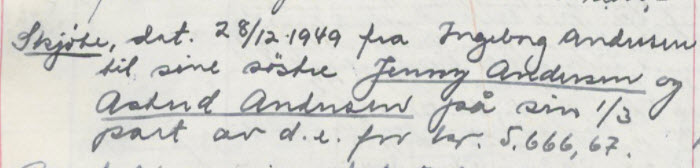 Skjøte, dat. 28/12.1949 fra Ingeborg Andersen
til sine søstre Jenny Andersen og
Astrid Andersen på sin 1/3
part av d.e. for kr. 5.666,67.